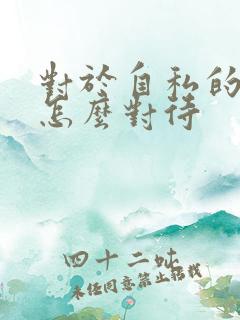 對於自私的
怎麼對待
四十二呔
未经同意禁止搭载